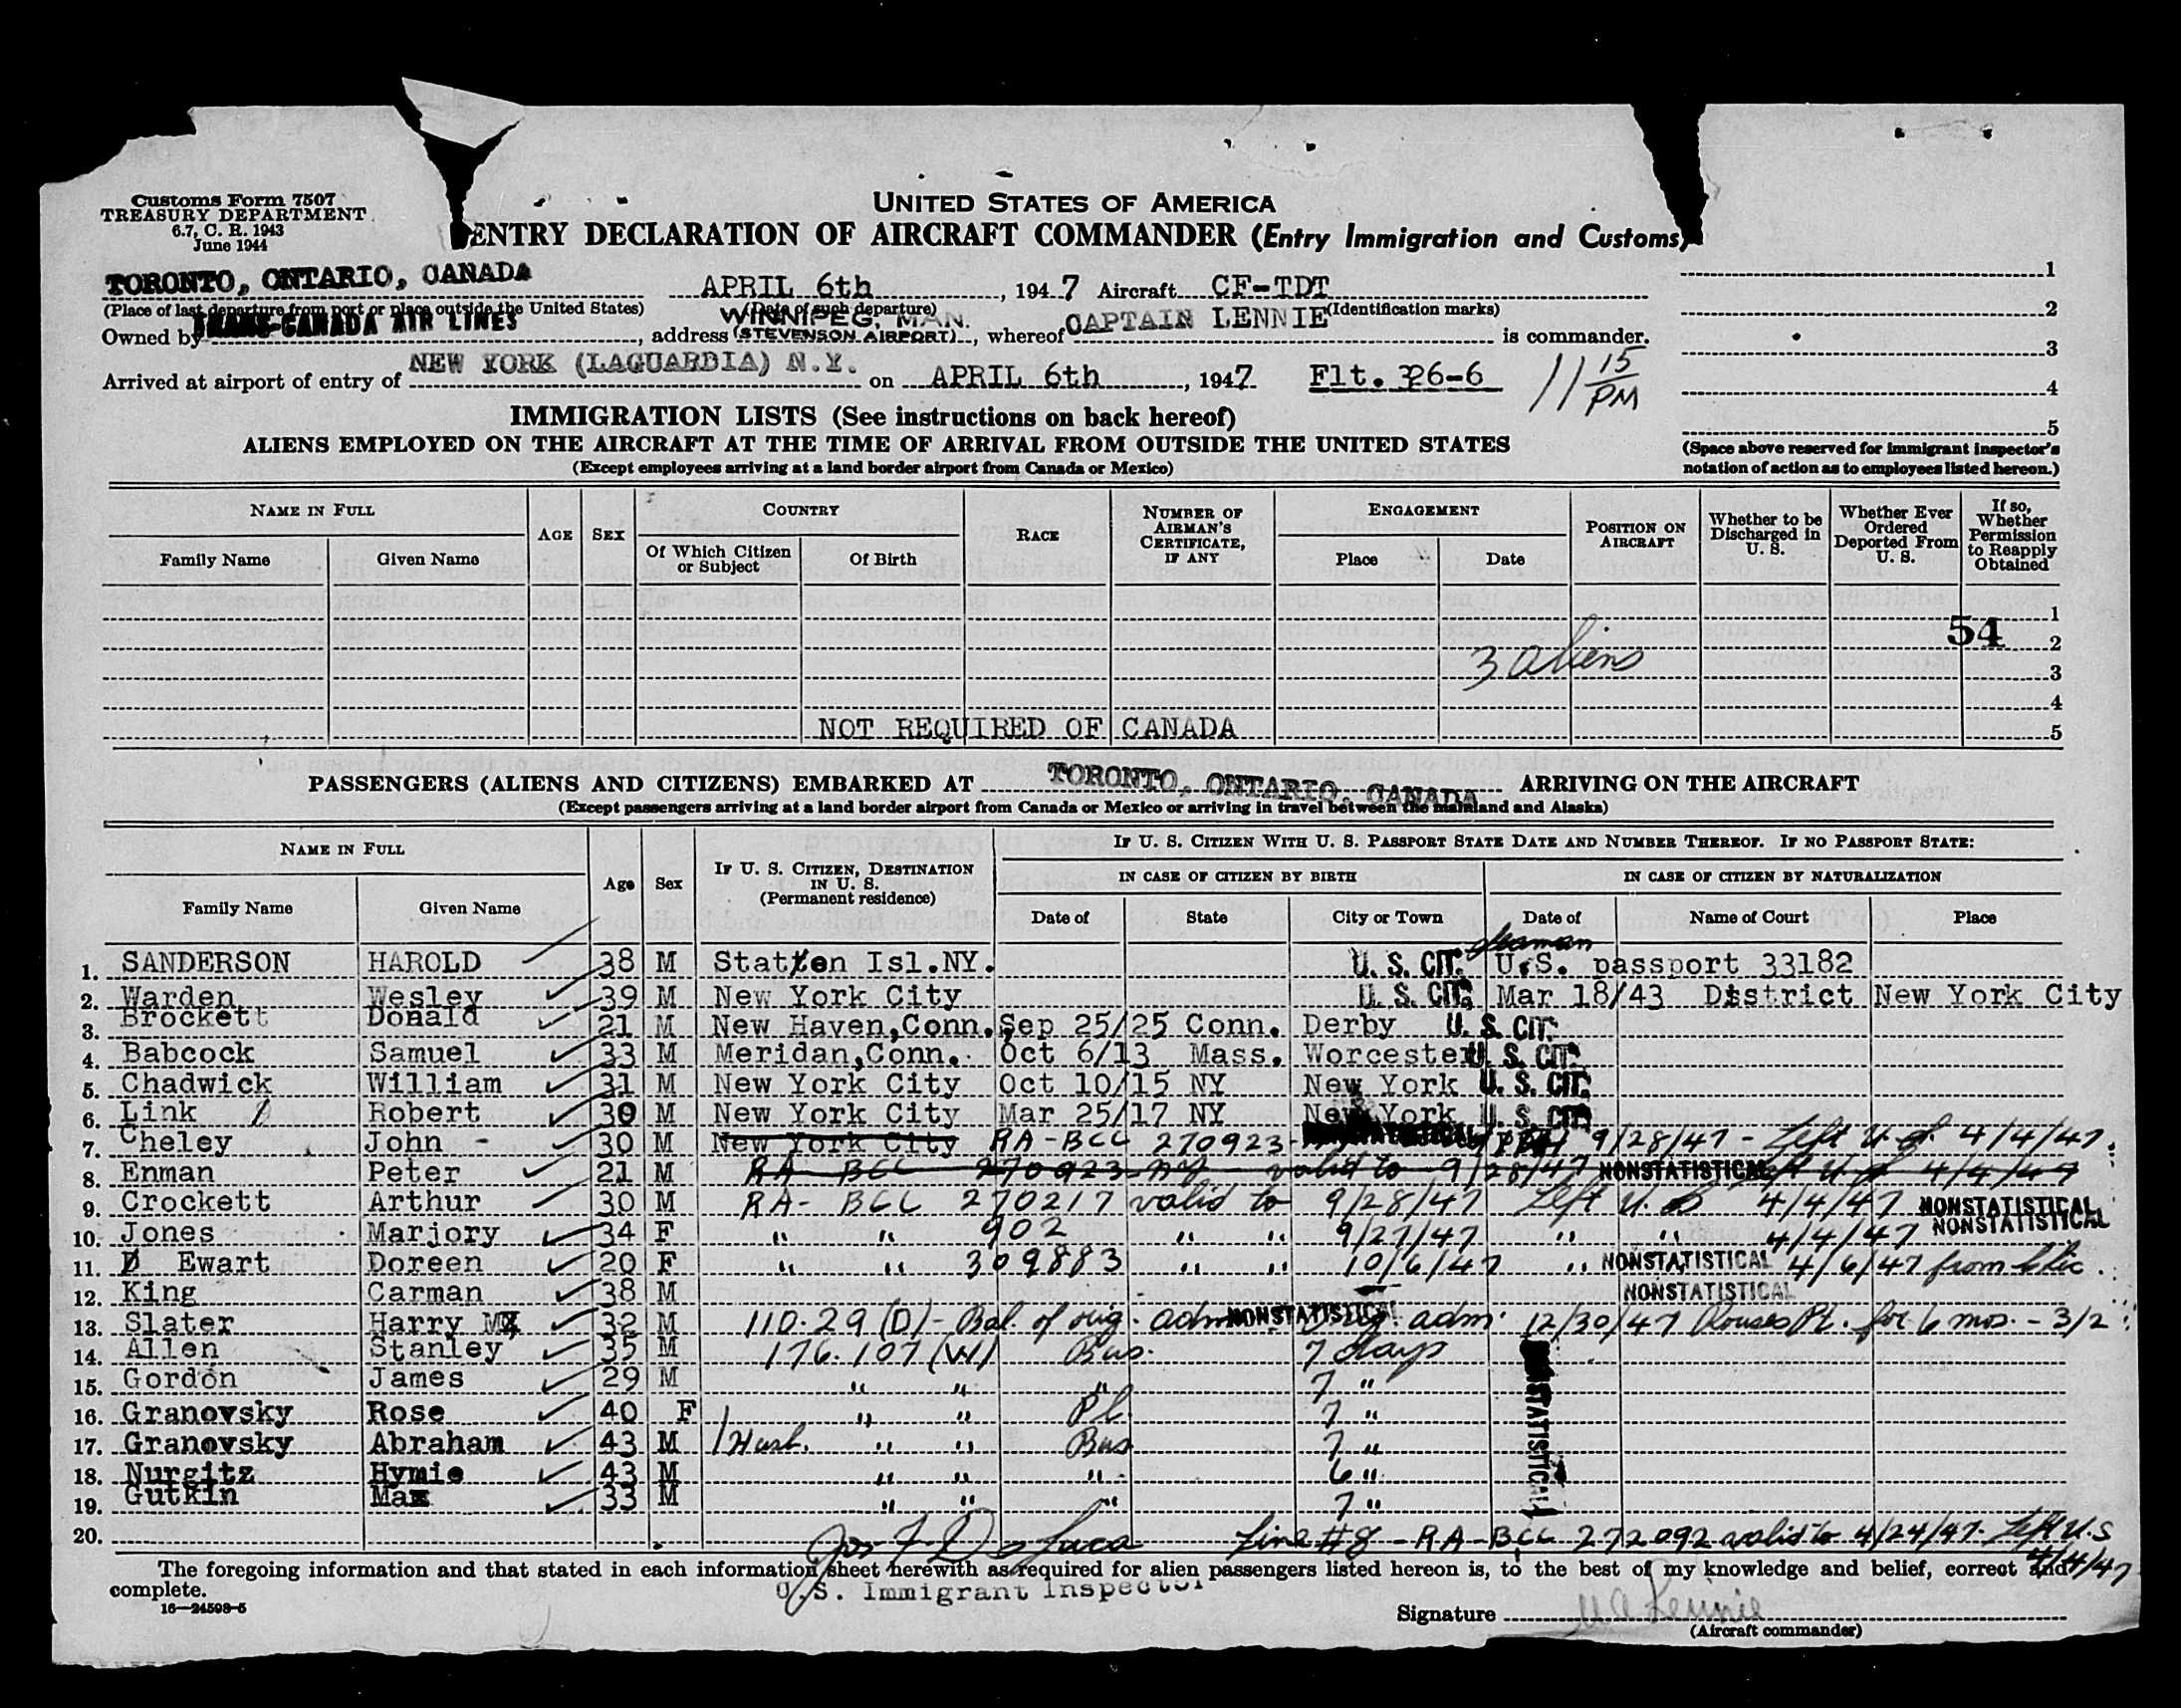 Customs Form 7507
TREASURY DEPARTMENT
6.7, C. R. 1943
June 1944
UNITED STATES OF AMERICA
ENTRY DECLARATION OF AIRCRAFT COMMANDER (Entry Immigration and Customs)
TORONTO, ONTARIO, CANADA APRIL 6th, 1947 Aircraft CF-TDT 1
(Place of last departure from port or place outside the United States) (Date of such departure) (Identification marks) 2
Owned by TRANS-CANADA AIR LINES, address WINNIPEG, MAN. (STEVENSON AIRPORT), whereof CAPTAIN LENNIE is commander. 3
Arrived at airport of entry of NEW YORK (LAGUARDIA) N.Y. on APRIL 6th, 1947 Flt. 326-6 11 15 PM 4
5
IMMIGRATION LISTS (See instructions on back hereof)
ALIENS EMPLOYED ON THE AIRCRAFT AT THE TIME OF ARRIVAL FROM OUTSIDE THE UNITED STATES
(Except employees arriving at a land border airport from Canada or Mexico)
(Space above reserved for immigrant inspector's notation of action as to employees listed hereon.)
NAME IN FULL AGE SEX COUNTRY RACE NUMBER OF AIRMAN'S CERTIFICATE, IF ANY ENGAGEMENT POSITION ON AIRCRAFT Whether to be Discharged in U. S. Whether Ever Ordered Deported From U. S. If so, Whether Permission to Reapply Obtained
Family Name Given Name Of Which Citizen or Subject Of Birth Place Date
1
54 2
3 aliens 3
4
NOT REQUIRED OF CANADA 5
PASSENGERS (ALIENS AND CITIZENS) EMBARKED AT TORONTO, ONTARIO, CANADA ARRIVING ON THE AIRCRAFT
(Except passengers arriving at a land border airport from Canada or Mexico or arriving in travel between the mainland and Alaska)
NAME IN FULL Age Sex IF U. S. CITIZEN, DESTINATION IN U. S. (Permanent residence) IF U. S. CITIZEN WITH U. S. PASSPORT STATE DATE AND NUMBER THEREOF. IF NO PASSPORT STATE:
IN CASE OF CITIZEN BY BIRTH IN CASE OF CITIZEN BY NATURALIZATION
Family Name Given Name Date of State City or Town Date of Name of Court Place
Seaman
1. SANDERSON HAROLD 38 M Statten Isl.NY. U. S. CIT. U.S. passport 33182
2. Warden Wesley 39 M New York City U. S. CIT. Mar 18/43 District New York City
3. Brockett Donald 21 M New Haven,Conn. Sep 25/25 Conn. Derby U. S. CIT.
4. Babcock Samuel 33 M Meridan,Conn. Oct 6/13 Mass. Worcester U. S. CIT.
5. Chadwick William 31 M New York City Oct 10/15 NY New York U. S. CIT.
6. Link Robert 30 M New York City Mar 25/17 NY New York U. S. CIT.
7. Cheley John - 30 M New York City RA-BCC 270923- 9/28/47 - Left U.S. 4/4/47.
8. Enman Peter 21 M RA BCC 270923 valid to 9/28/47 NONSTATISTICAL Left U S 4/4/47
9. Crockett Arthur 30 M RA- BCC 270217 valid to 9/28/47 Left U. S 4/4/47 NONSTATISTICAL
10. Jones Marjory 34 F " " 902 " " 9/27/47 " " 4/4/47 NONSTATISTICAL
11. D Ewart Doreen 20 F " " 309883 " " 10/6/47 " NONSTATISTICAL 4/6/47 from
12. King Carman 38 M NONSTATISTICAL
13. Slater Harry M 32 M 110.29 (D)- Bal. of orig. adm NONSTATISTICAL adm. 12/30/47 Rouses Pt. for 6 mos. - 3/2
14. Allen Stanley 35 M 176.107 (W) Bus. 7 days
15. Gordon James 29 M " " " 7 "
16. Granovsky Rose 40 F " " Pl. 7 "
17. Granovsky Abraham 43 M Husb. " " Bus 7 "
18. Nurgitz Hymie 43 M " " " 6 "
19. Gutkin Max 33 M " " " 7 "
NONSTATISTICAL
20. Line #8 - RA-BCC 272092 valid to 4/24/47. Left U.S 4/4/47
The foregoing information and that stated in each information sheet herewith as required for alien passengers listed hereon is, to the best of my knowledge and belief, correct and complete.
U.S. Immigrant Inspector
16—24598-5
Signature
(Aircraft commander)